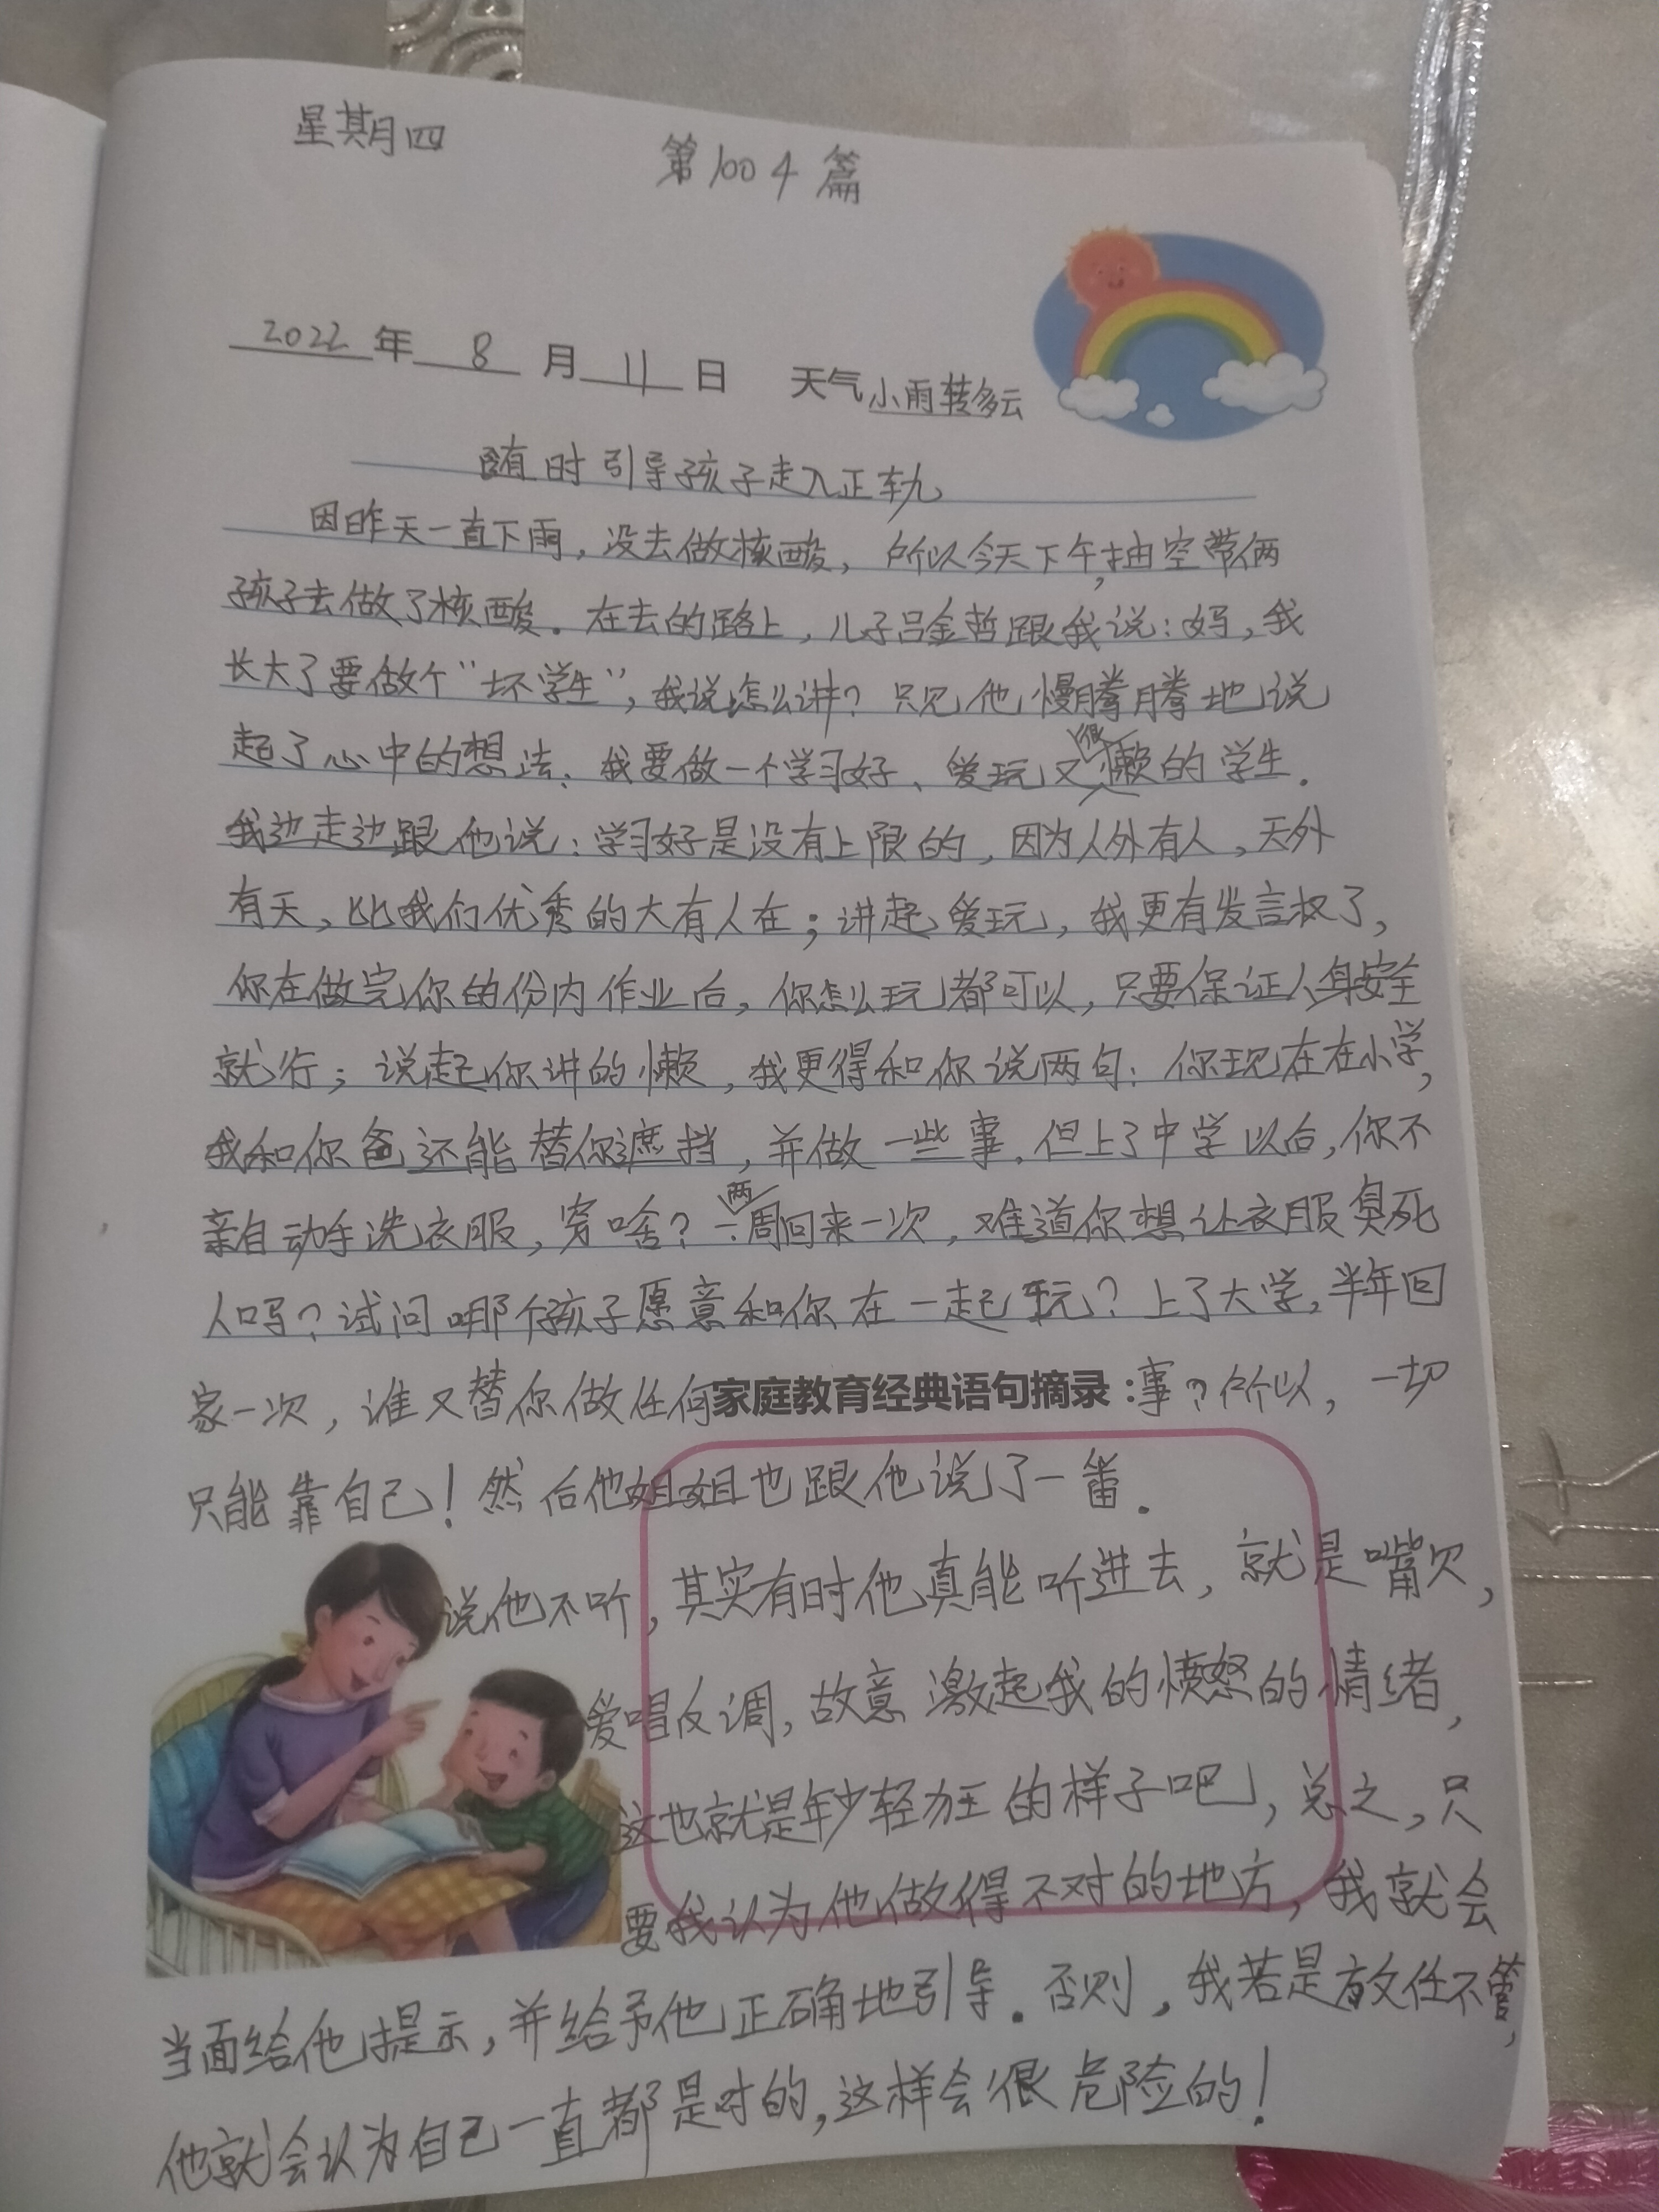 星期四 第1004篇
2022年8月11日 天气小雨转多云
随时引导孩子走入正轨
因昨天一直下雨，没去做核酸，所以今天下午，抽空带俩
孩子去做了核酸。在去的路上，儿子吕金哲跟我说：妈，我
长大了要做个“坏学生”，我说怎么讲？只见他慢腾腾地说
起了心中的想法：我要做一个学习好、爱玩又很懒的学生。
我边走边跟他说：学习好是没有上限的，因为人外有人，天外
有天，比我们优秀的大有人在；讲起爱玩，我更有发言权了，
你在做完你的份内作业后，你怎么玩都可以，只要保证人身安全
就行；说起你讲的懒，我更得和你说两句：你现在在小学，
我和你爸还能替你遮挡，并做一些事，但上了中学以后，你不
亲自动手洗衣服，穿啥？一两周回来一次，难道你想让衣服臭死
人吗？试问哪个孩子愿意和你在一起玩？上了大学，半年回
家一次，谁又替你做任何家庭教育经典语句摘录：事？所以，一切
只能靠自己！然后他姐姐也跟他说了一番。
说他不听，其实有时他真能听进去，就是嘴欠，
爱唱反调，故意激起我的愤怒的情绪，
这也就是年少轻狂的样子吧，总之，只
要我认为他做得不对的地方，我就会
当面给他提示，并给予他正确地引导。否则，我若是放任不管，
他就会认为自己一直都是对的，这样会很危险的！